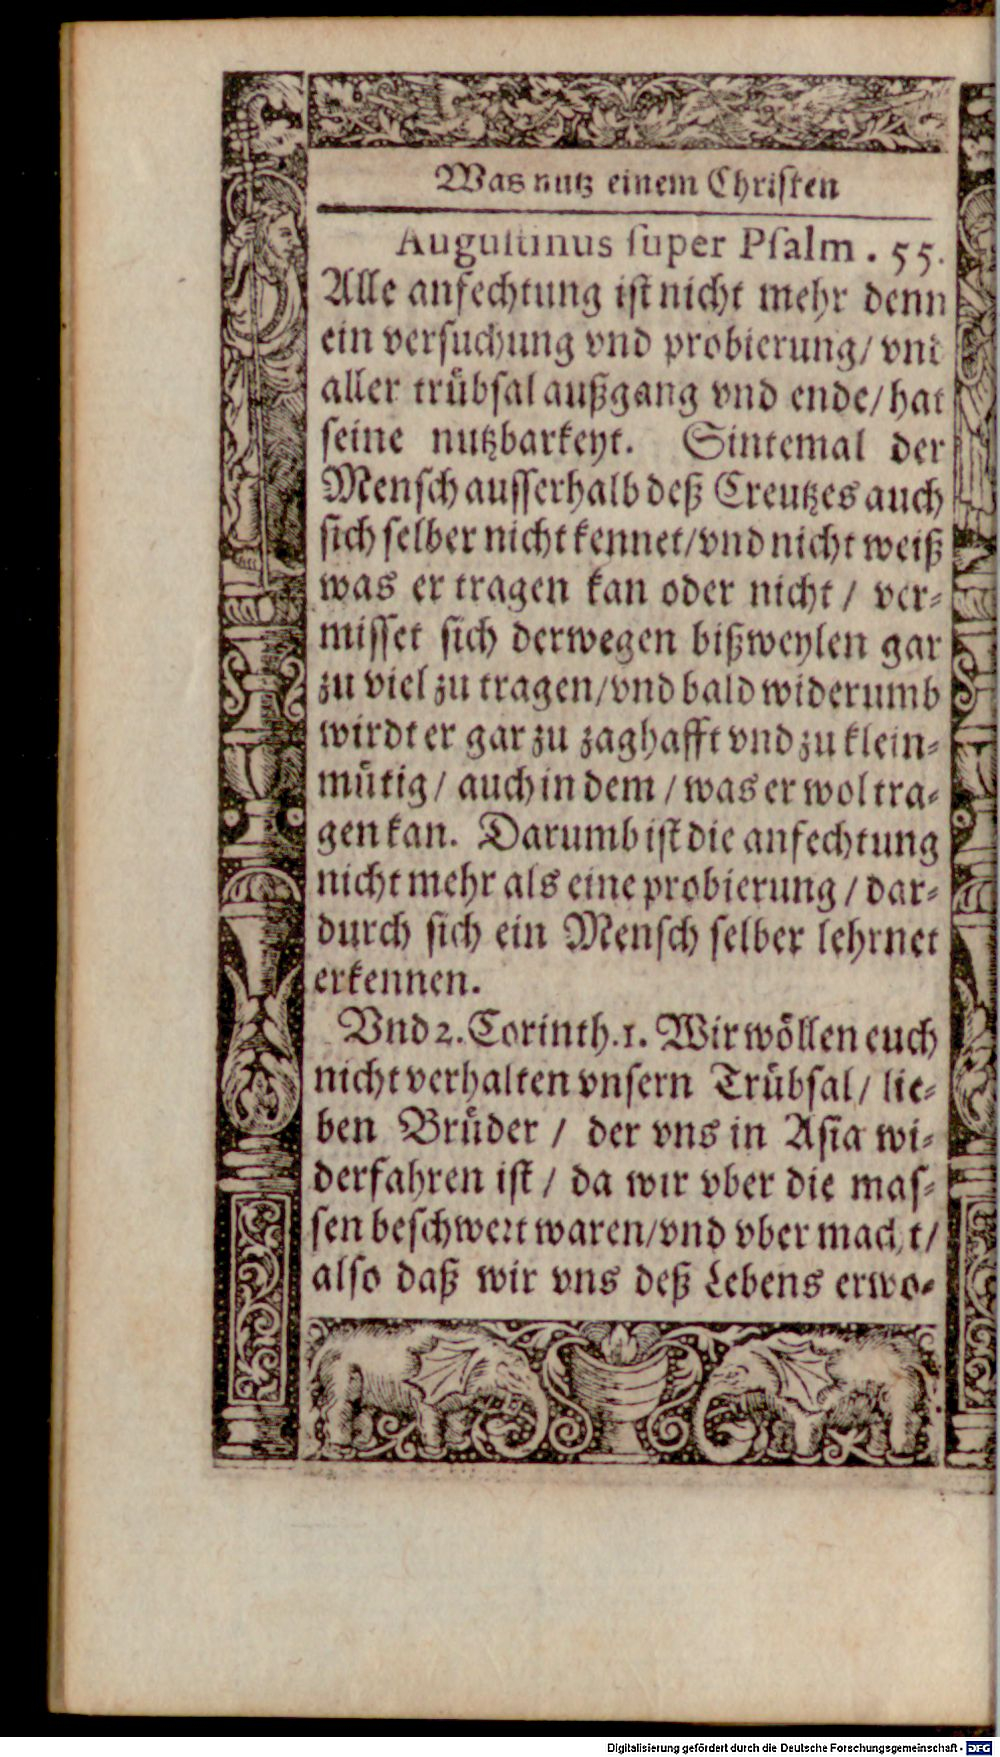 Was nutz einem Chriſten
Auguſtinus ſuper Pſalm . 55.
Alle anfechtung iſt nicht mehr denn
ein verſuchung vnd probierung/ vnd
aller trübſal außgang vnd ende/ hat
ſeine nutzbarkeyt. Sintemal der
Menſch auſſerhalb deß Creutzes auch
ſich ſelber nicht kennet/ vnd nicht weiß
was er tragen kan oder nicht / ver⸗
miſſet ſich derwegen bißweylen gar
zu viel zu tragen/ vnd bald widerumb
wirdt er gar zu zaghafft vnd zu klein⸗
mütig / auch in dem / was er wol tra⸗
gen kan. Darumb iſt die anfechtung
nicht mehr als eine probierung / dar⸗
durch ſich ein Menſch ſelber lehrnet
erkennen.
Vnd 2. Corinth. 1. Wir wöllen euch
nicht verhalten vnſern Trübſal / lie⸗
ben Brüder / der vns in Aſia wi⸗
derfahren iſt / da wir vber die maſ⸗
ſen beſchwert waren/ vnd vber macht/
alſo daß wir vns deß Lebens erwo⸗
Digitalisierung gefördert durch die Deutsche Forschungsgemeinschaft - DFG